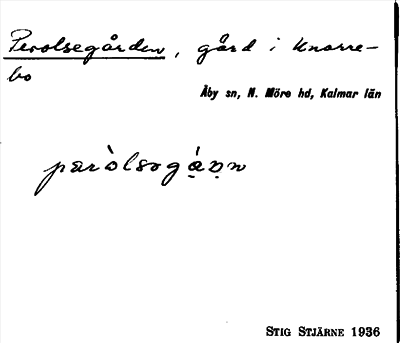 Perolsegården, gård i Knarre-
bo
Åby sn, N. Möre hd, Kalmar län
pæròlsɘgá̤ṇn
STIG STJÄRNE 1936